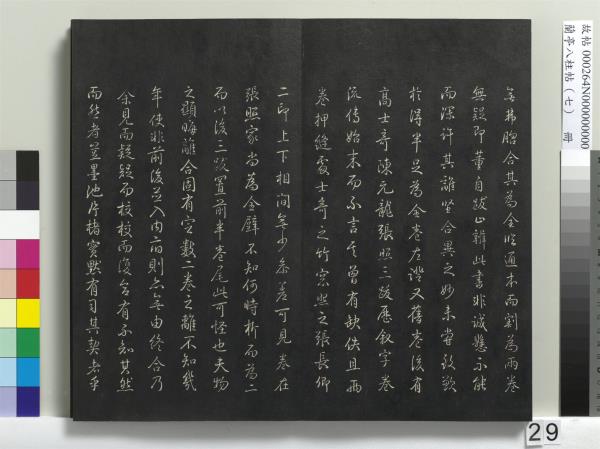 無弗脗合其為全㡧通本而割為兩卷
無疑即董自跋亦輒此書非誠懸不能
而深許其離堅合異之妙未嘗致歎
於得半足為全卷左證又舊卷後有
高士奇陳元龍張照三跋歷叙字卷
流傳始末而不言其曾有缺佚且兩
卷押縫處士奇之竹窓照之張長卿
二印上下相間無少參差可見卷在
張照家尚為全璧不知何時析而為二
而以後三跋置前半卷尾此可怪也夫物
之顯晦離合固有定數二卷之離不知幾
年使非前後並入內府則亦無由終合乃
余見而疑疑而校校而復合有不知其然
而然者豈墨池片楮實默有司其契者乎
故帖 000264N000000000
蘭亭八柱帖（七） 冊
29